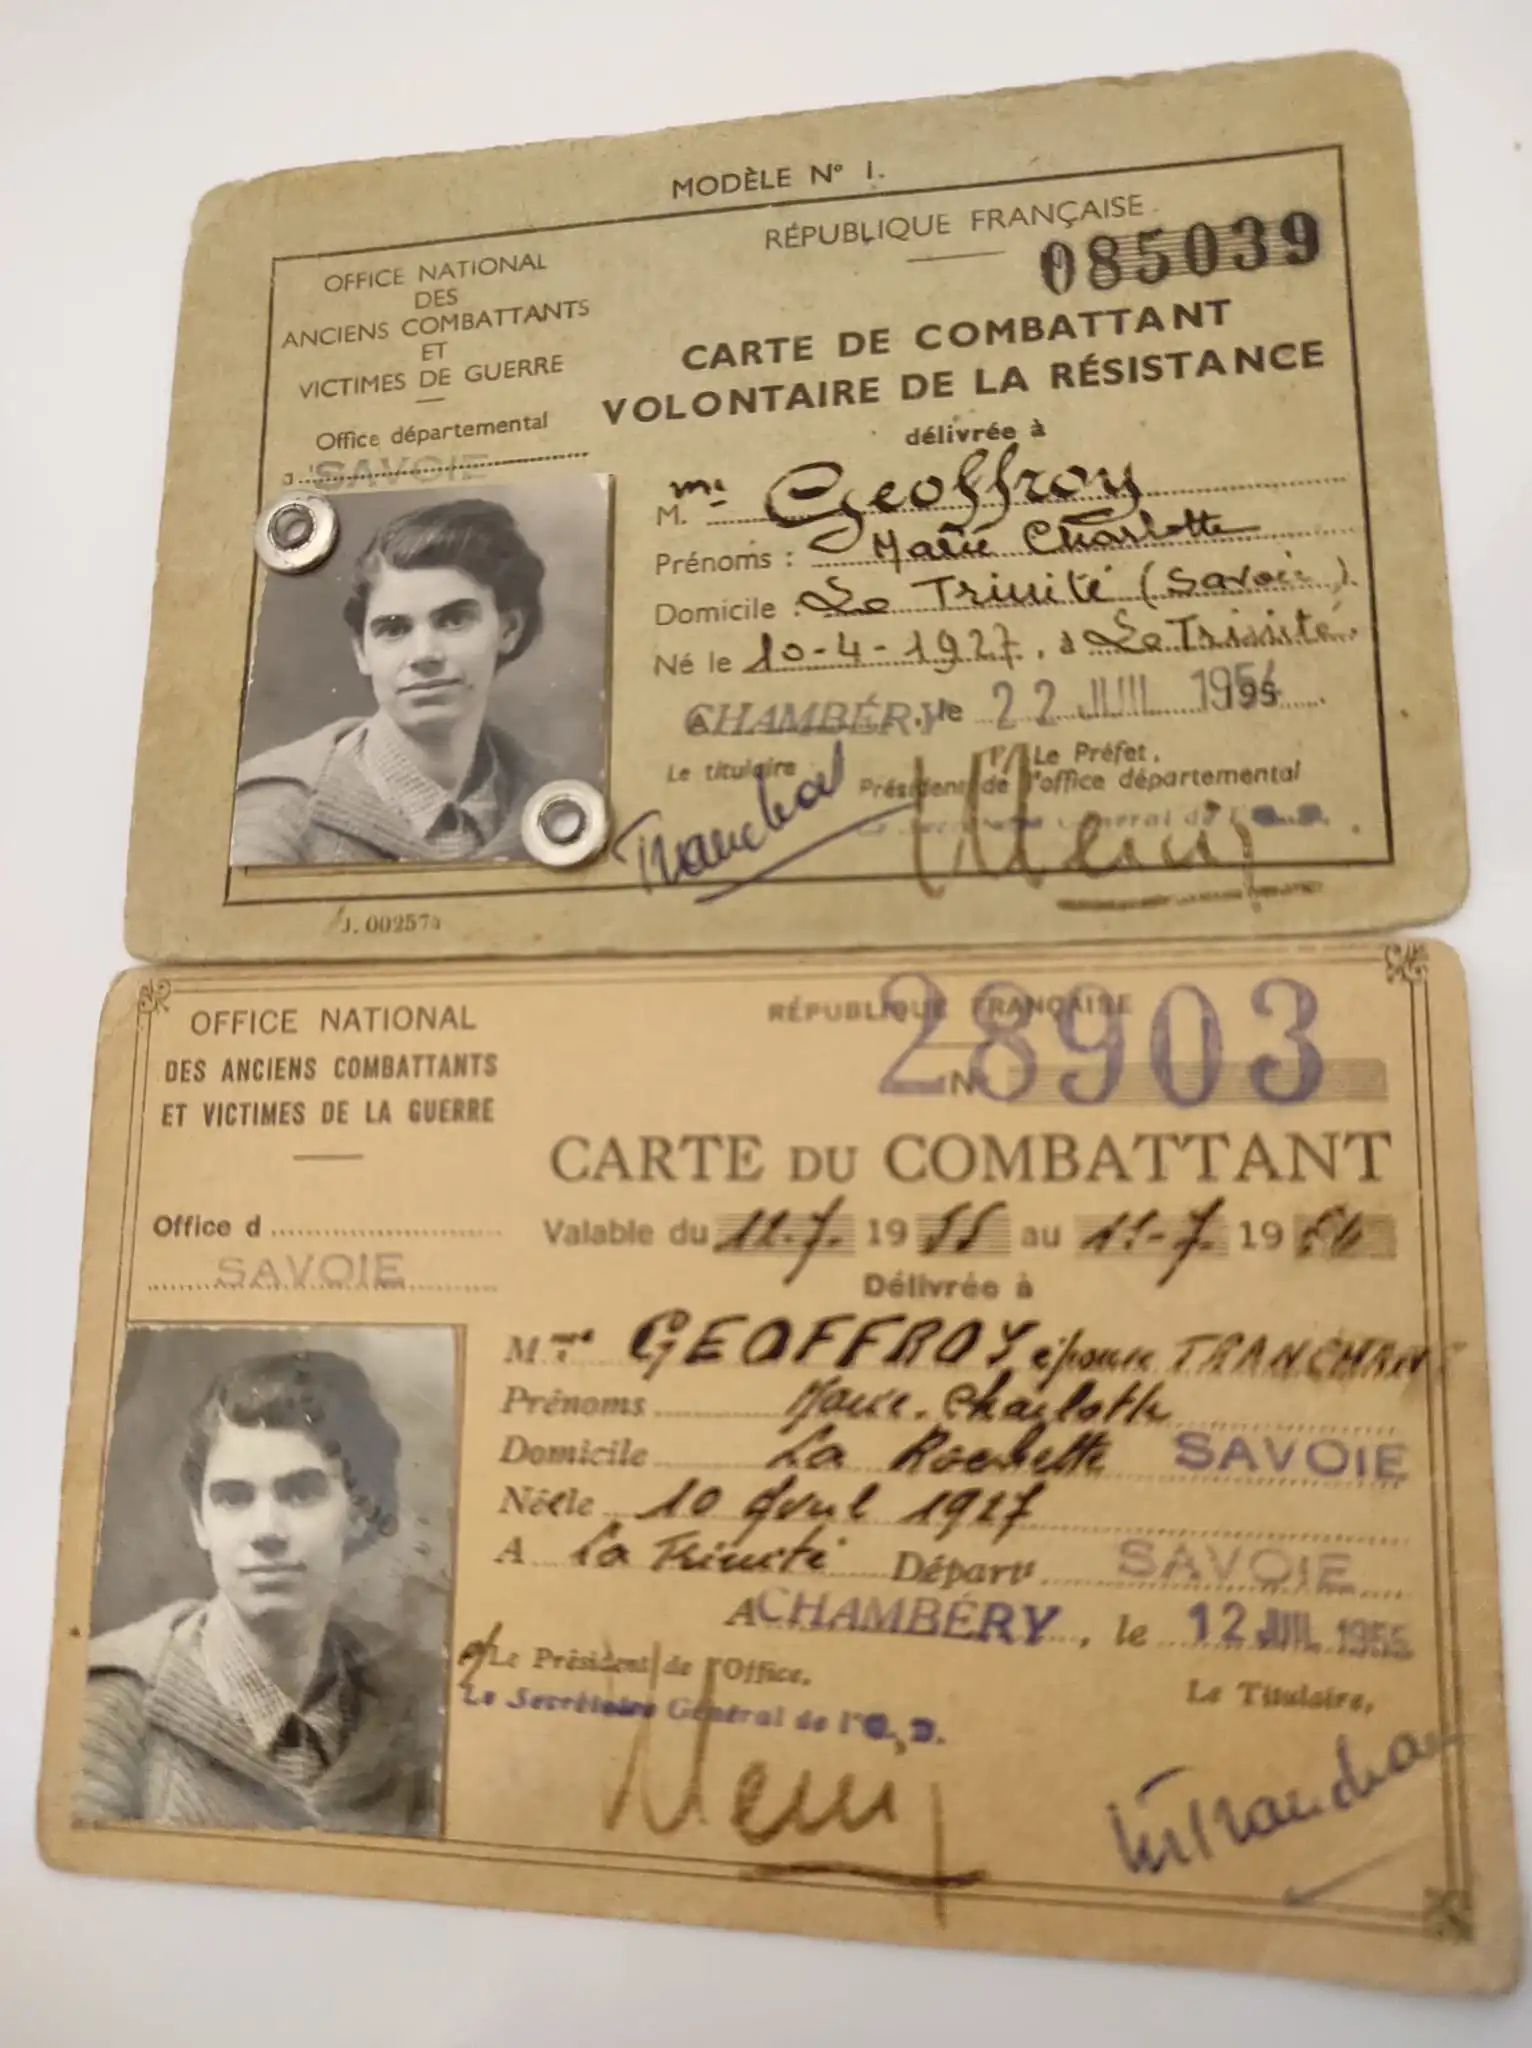 MODÈLE N° 1.
OFFICE NATIONAL
DES
ANCIENS COMBATTANTS
ET
VICTIMES DE GUERRE
Office départemental
SAVOIE
RÉPUBLIQUE FRANÇAISE
085039
CARTE DE COMBATTANT
VOLONTAIRE DE LA RÉSISTANCE
délivrée à
M. Geoffroy
Prénoms : Marie Charlotte
Domicile : La Trinité (Savoie)
Né le 10-4-1927, à La Trinité
A CHAMBÉRY, le 22 JUIL
Le titulaire
Le Préfet,
Président de l'office départemental
J. 002574
OFFICE NATIONAL
DES ANCIENS COMBATTANTS
ET VICTIMES DE LA GUERRE
Office d
SAVOIE
RÉPUBLIQUE FRANÇAISE
N 28903
CARTE DU COMBATTANT
Valable du 12.7. 1955 au 11-7. 19
Délivrée à
Mme GEOFFROY épouse TRANCHAN
Prénoms Marie. Charlotte
Domicile La Rochette SAVOIE
Née le 10 Avril 1927
A La Trinité Départt SAVOIE
A CHAMBÉRY, le 12 JUIL 1955
Le Président de l'Office,
Le Secrétaire Général de l'O.D.
Le Titulaire,